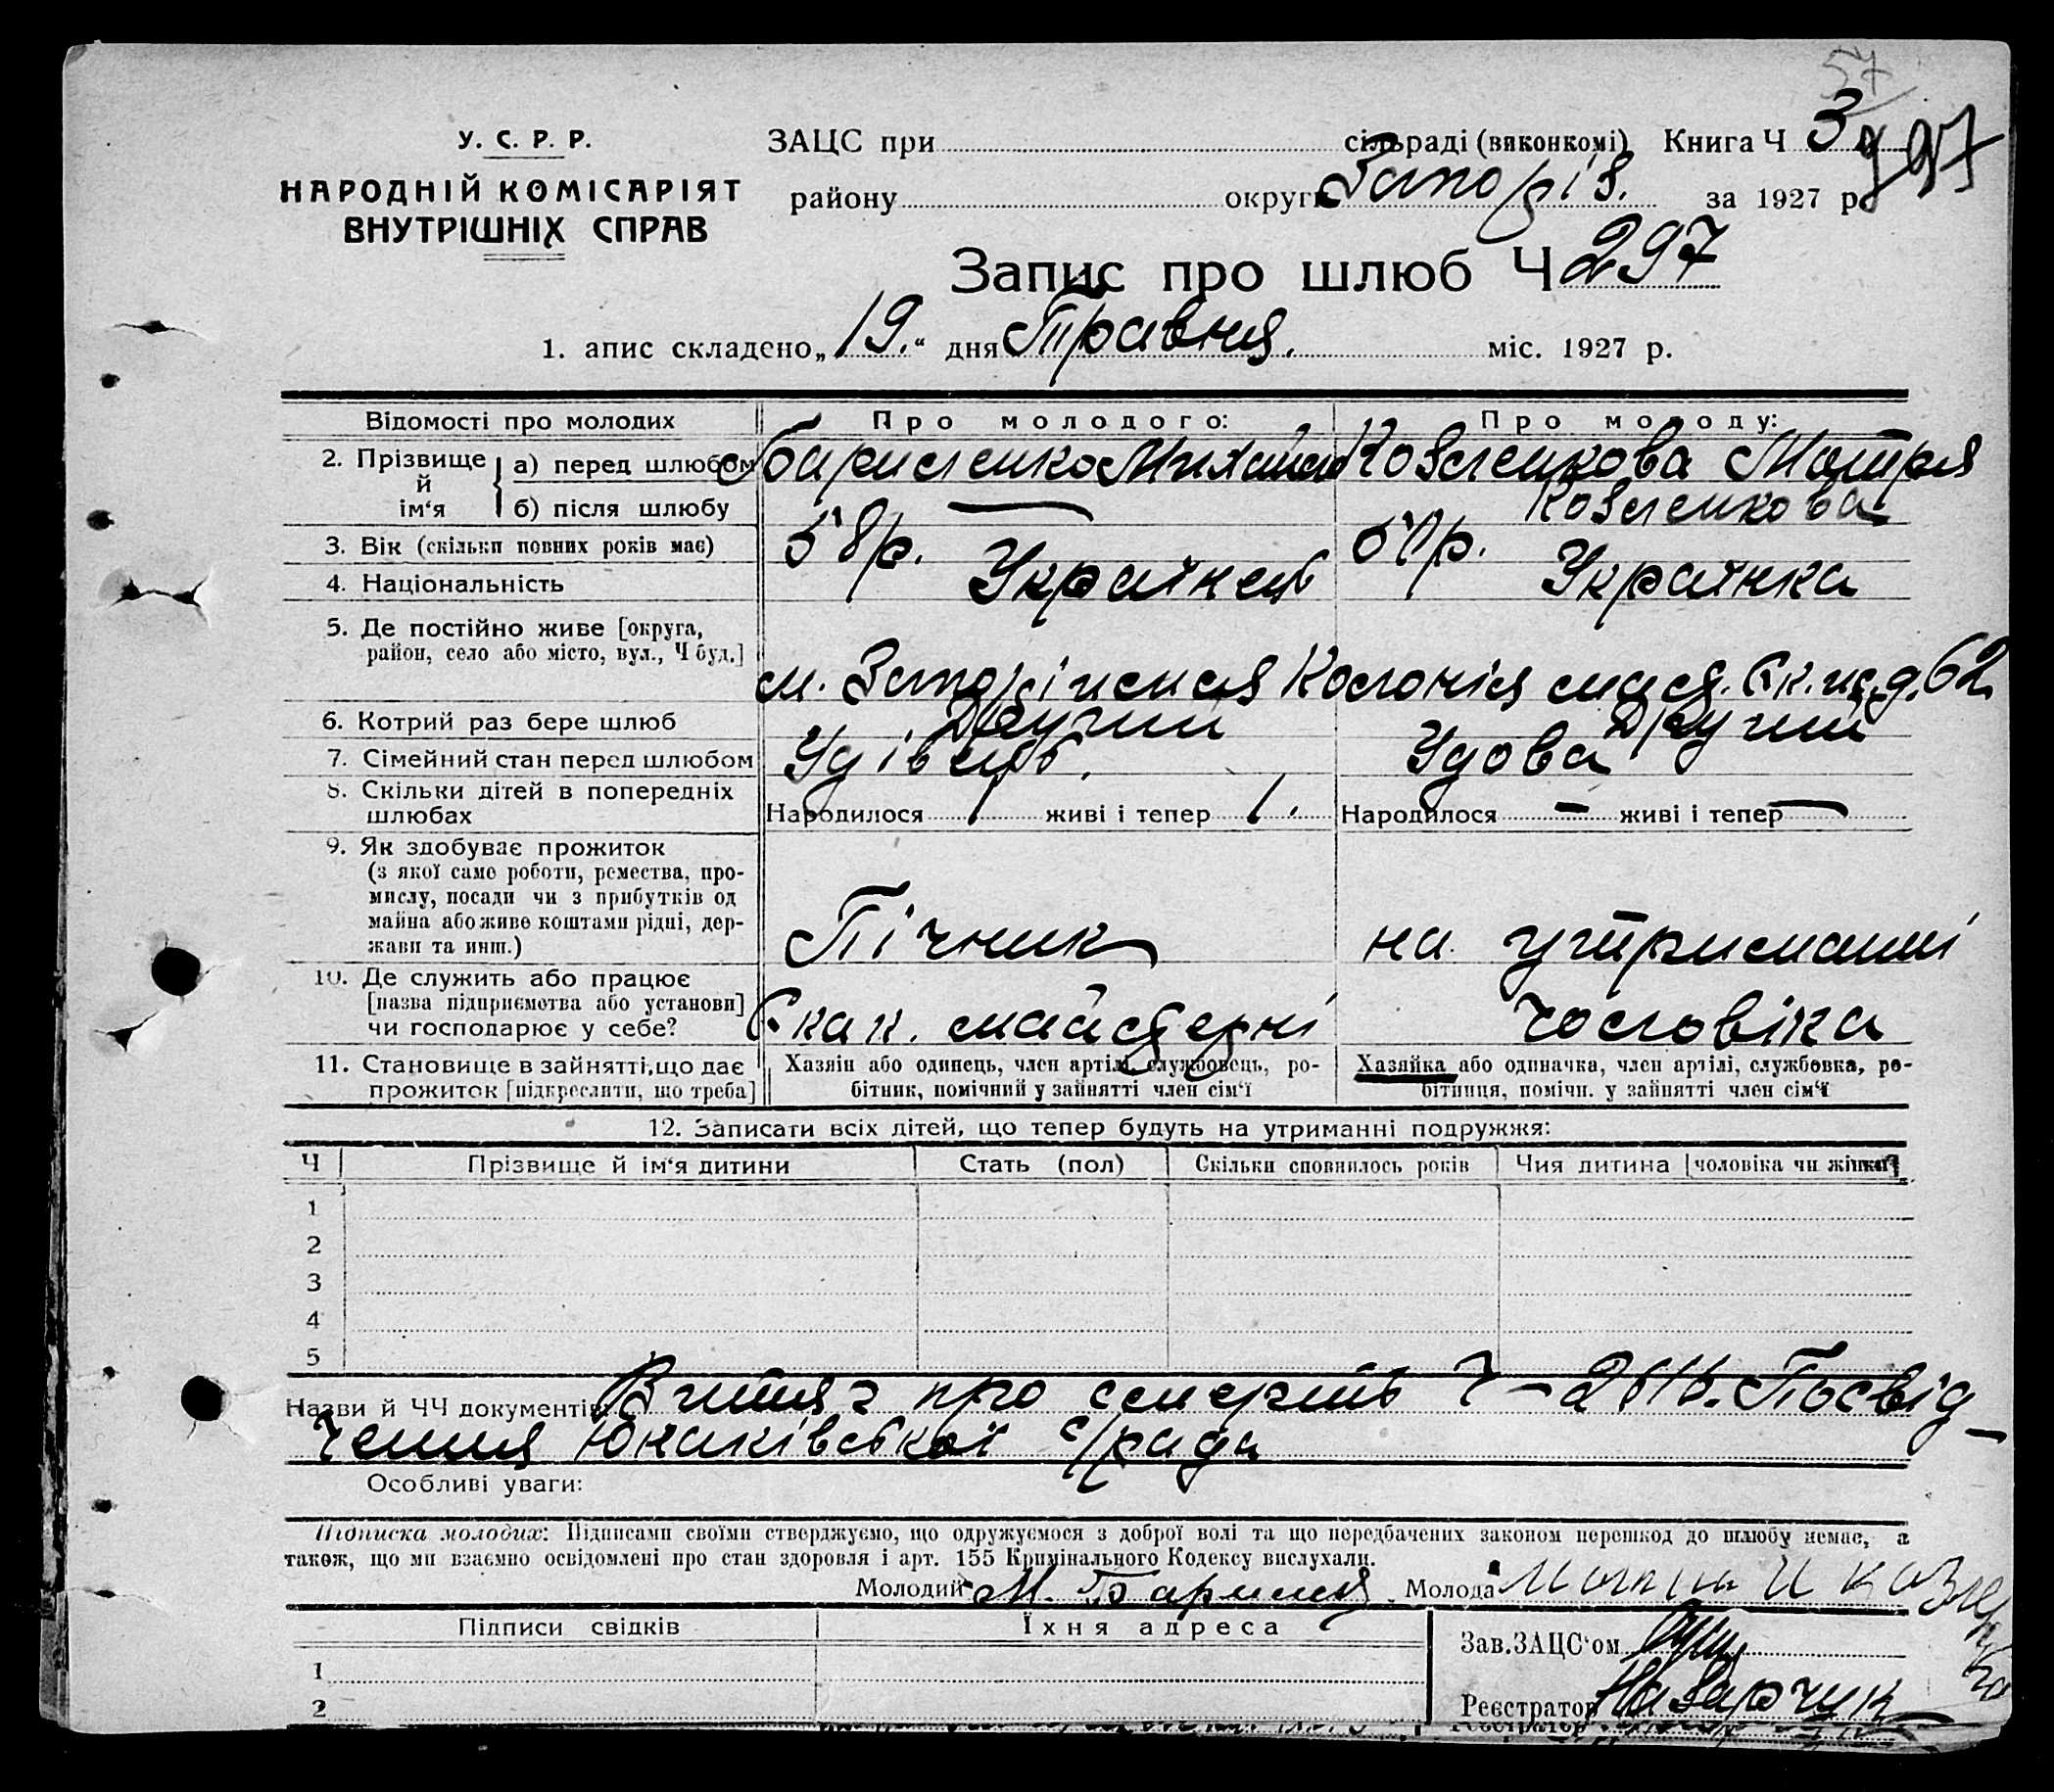 57
У. С. Р. Р.
НАРОДНІЙ КОМІСАРІЯТ
ВНУТРІШНІХ СПРАВ
ЗАЦС при сільраді (виконкомі) Книга Ч 3
297
району округи Запоріз. за 1927 р.
Запис про шлюб Ч 297
1. апис складено „19.“ дня Травня. міс. 1927 р.
Відомості про молодих
Про молодого:
Про молоду:
2. Прізвище й ім‘я
а) перед шлюбом
Козленкова Мотря
б) після шлюбу
Козленкова
3. Вік (скільки повних років має)
58 р.
р.
4. Національність
Українець
Українка
5. Де постійно живе [округа,
район, село або місто, вул., Ч буд.]
м. Колонія д. 62
6. Котрий раз бере шлюб
Другий
Другий
7. Сімейний стан перед шлюбом
Удівець.
Удова
8. Скільки дітей в попередніх
шлюбах
Народилося 1 живі і тепер 1.
Народилося — живі і тепер —
9. Як здобуває прожиток
(з якої саме роботи, ремества, про-
мислу, посади чи з прибутків од
майна або живе коштами рідні, дер-
жави та инш.)
Пічник
на утриманні
10. Де служить або працює
[назва підприємства або установи]
чи господарює у себе?
майстерні
чоловіка
11. Становище в зайнятті, що дає
прожиток [підкреслити, що треба]
Хазяїн або одинець, член артілі, службовець, ро-
бітник, помічний у зайнятті член сім‘ї
Хазяйка або одиначка, член артілі, службовка, ро-
бітниця, помічн. у зайнятті член сім‘ї
12. Записати всіх дітей, що тепер будуть на утриманні подружжя:
Ч
Прізвище й ім‘я дитини
Стать (пол)
Скільки сповнилось років
Чия дитина [чоловіка чи жінки]
1
2
3
4
5
Назви й ЧЧ документів: Витяг про смерть Ч – Посвід-
чення Юнаківської с/рада
Особливі уваги:
Підписка молодих: Підписами своїми стверджуємо, що одружуємося з доброї волі та що передбачених законом перешкод до шлюбу немає, а
також, що ми взаємно освідомлені про стан здоровля і арт. 155 Кримінального Кодексу вислухали.
Молодий М. Молода
Підписи свідків
Їхня адреса
Зав. ЗАЦС‘ом
1
2
Реєстратор Назарчук